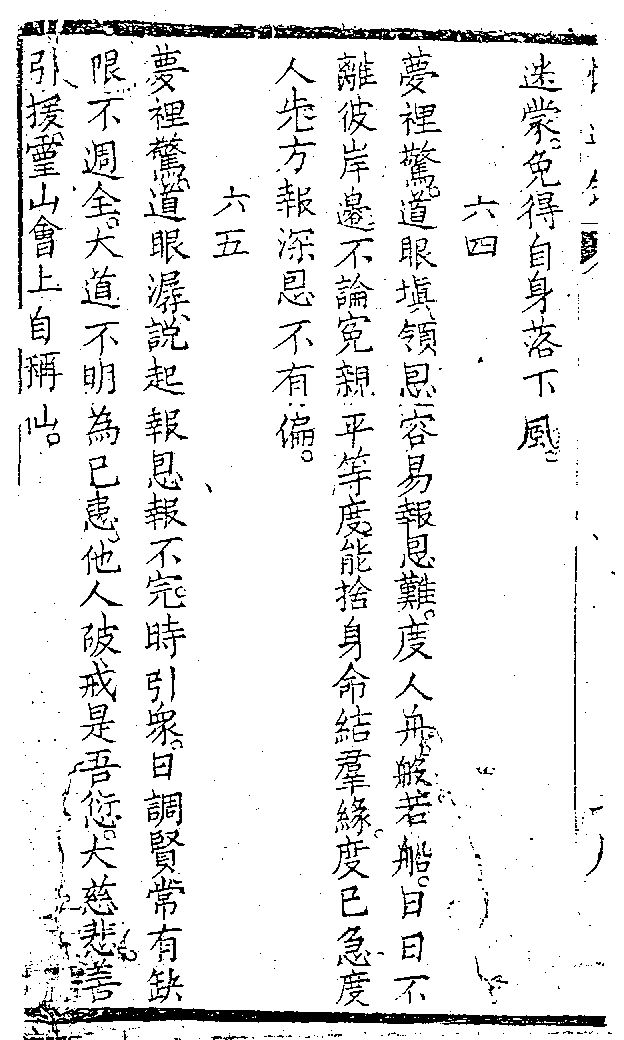 迷蒙。免得自身落下風。
六四
夢裡驚。道眼塡、領恩容易報恩難。度人舟。般若船。日日不
離彼岸邊、不論寃親平等度。能捨身命結羣緣。度己急度
人先。方報深恩不有偏。
六五
夢裡驚。道眼潺、說起報恩報不完。時引衆。日調賢。常有缺
限不週全。大道不明為己患、他人破戒是吾愆。大慈悲。善
引援、靈山會上自稱仙。